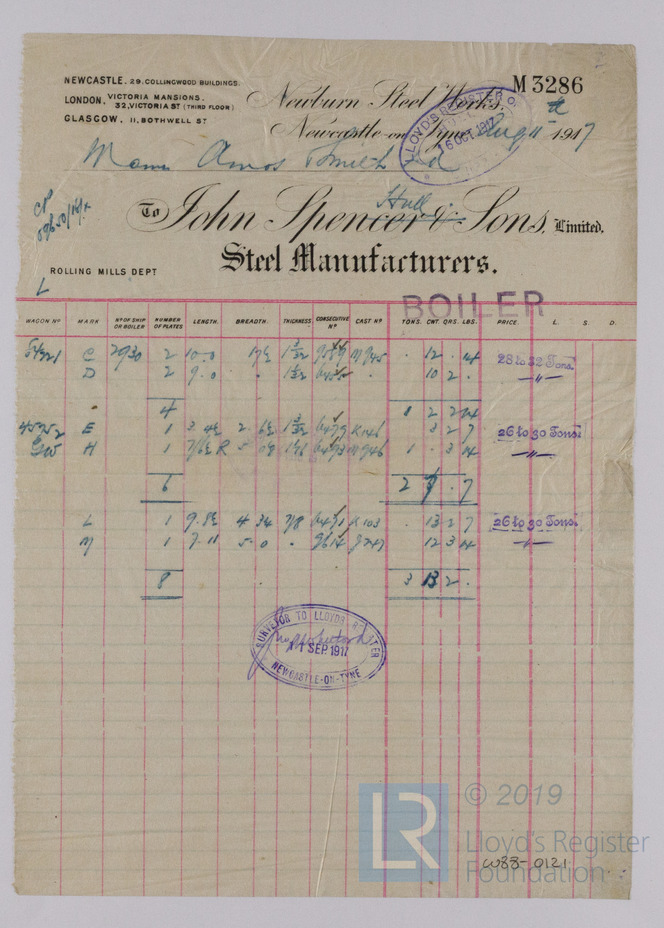 NEWCASTLE. 29. COLLINGWOOD BUILDINGS.
M3286
LONDON. VICTORIA MANSIONS.
32, VICTORIA ST (THIRD FLOOR).
GLASGOW. 11, BOTHWELL ST
Newburn Steel Works,
Newcastle-on-Tyne Aug 11th 1917
LLOYD'S REGISTER
16 OCT. 1917
Amos Smith Ld
Hull
To John Spencer & Sons, Limited.
Steel Manufacturers.
ROLLING MILLS DEPT
BOILER
WAGON No MARK No OF SHIP OR BOILER NUMBER OF PLATES LENGTH. BREADTH. THICKNESS CONSECUTIVE No CAST No TONS. CWT QRS. LBS. PRICE. L. S. D.
C 2930 2 10.0 12 . 14 28 to 32 Tons.
D 2 9.0 10 2 . -"-
4 1 2 2 14
E 1 3 2 7 26 to 30 Tons.
GW H 1 1 . 3 14 -"-
6 2 7 . 7
L 1 4 3¼ 7/8 13 2 7 26 to 30 Tons.
M 1 7.11 5.0 12 3 14 -"-
8 3 13 2 .
SURVEYOR TO LLOYDS REGISTER
11 SEP 1917
NEWCASTLE-ON-TYNE
LR
© 2019
Lloyd's Register
Foundation
W88-0121